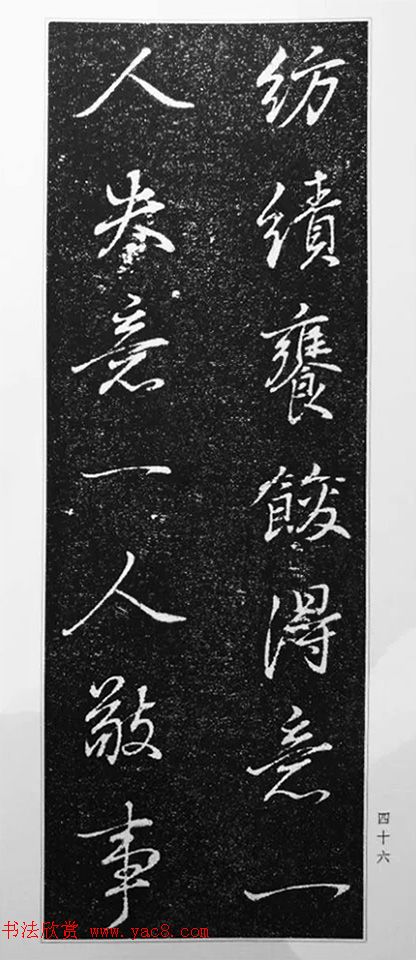 紡績饔餕得意一
人失意一人敬事
四十六
书法欣赏 www.yac8.com